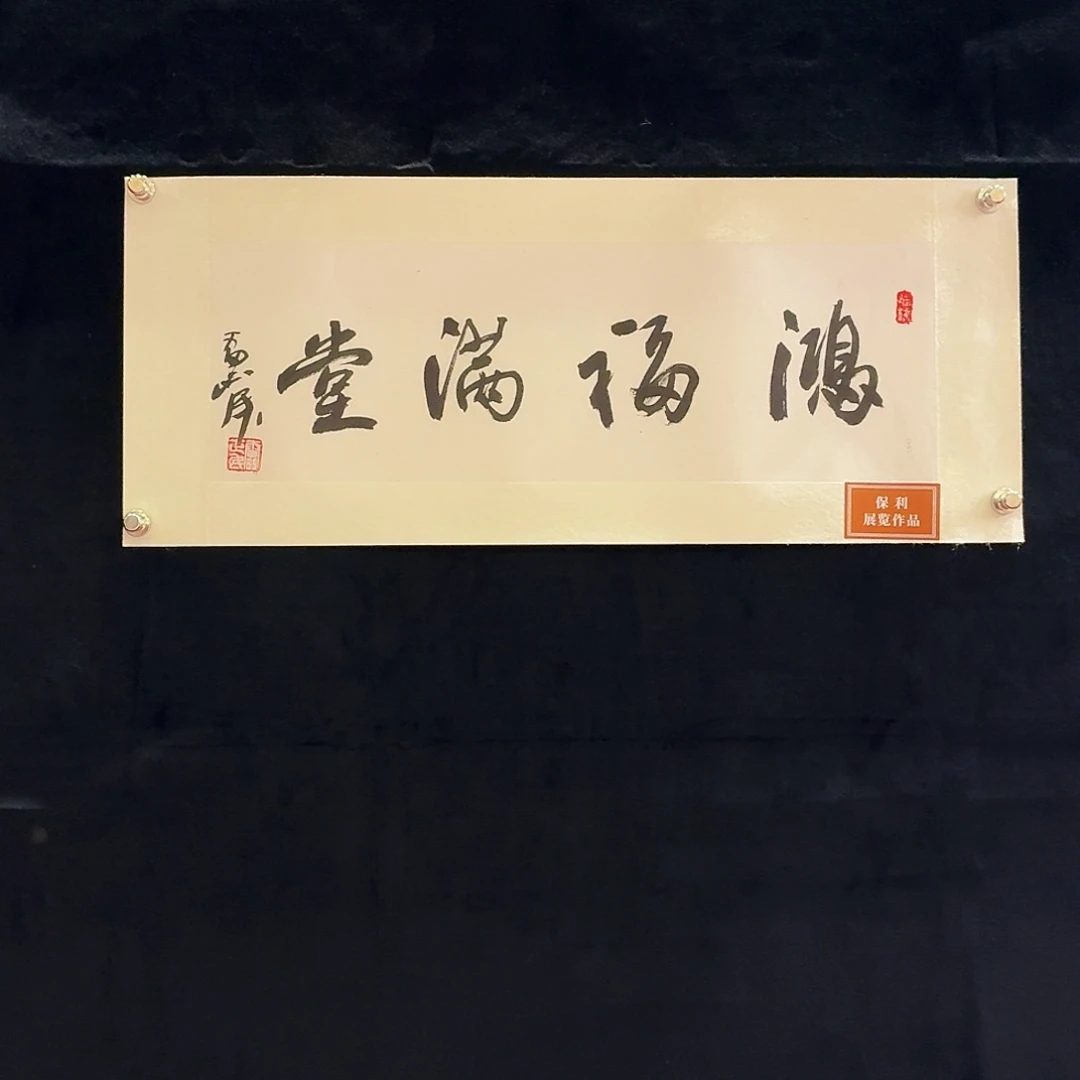 鴻福滿堂
保利
展览作品